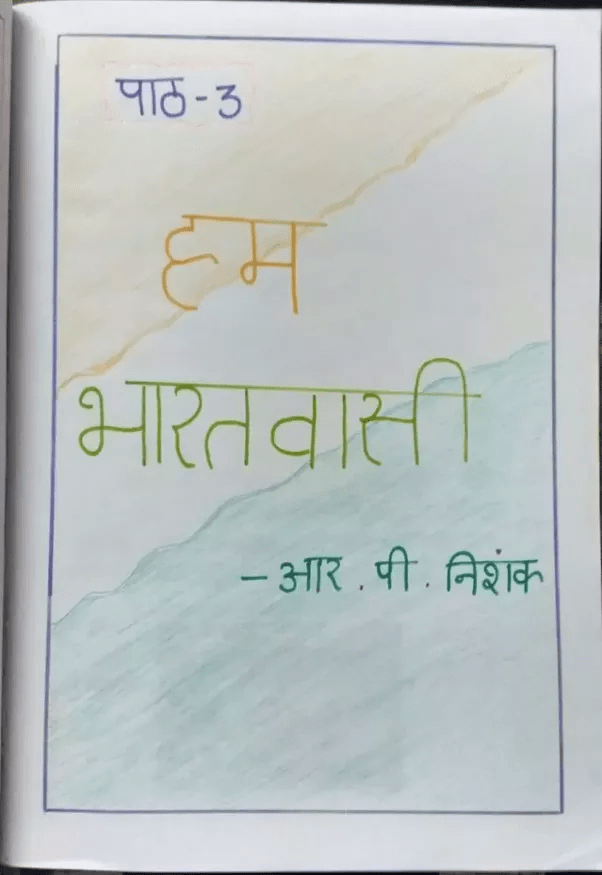 पाठ-3
हम
भारतवासी
- आर. पी. निशंक